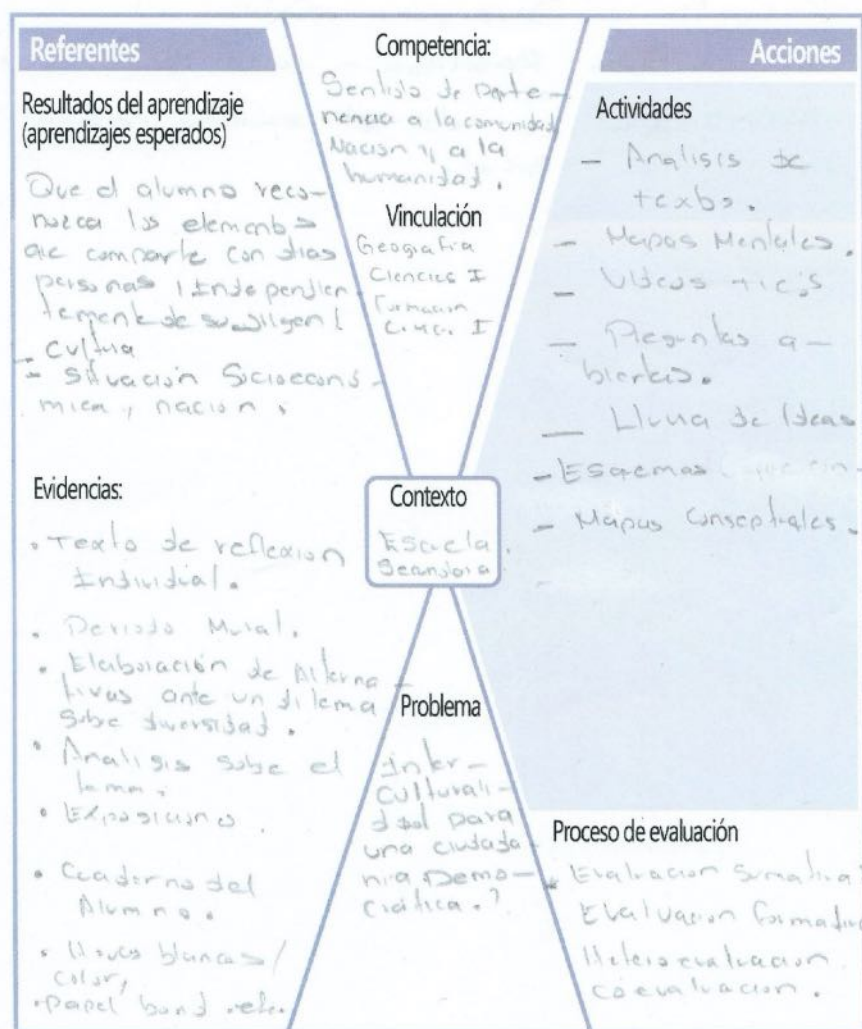 Referentes
Resultados del aprendizaje
(aprendizajes esperados)
Que el alumno reco-
nozca los elementos
que comparte con otras
personas, Independien-
temente de su origen,
- Cultura
- Situación Socioeconó-
mica, nacion.
Evidencias:
• Texto de reflexion
Individial.
• Periodo Mural.
• Elaboración de Alterna-
tivas ante un dilema
sobe diversidad.
• Analisis sobe el
tema.
• Exposiciones.
• Cuaderno del
Alumno.
• Hojas blancas/
color,
• papel bond. etc.
Competencia:
Sentido de perte-
nencia a la comunidad
Nacion y a la
humanidad.
Vinculación
Geografia
Ciencias I
Formacion
Civica I
Contexto
Escuela.
Secundaria
Problema
Inter-
Culturali-
dad para
una ciudada-
nia Demo-
cratica.?
Acciones
Actividades
- Analisis de
textos.
- Mapas Mentales.
- Videos tic's
- Preguntas a-
biertas.
- Lluvia de Ideas
- Esqemas
- Mapas Conseptuales.
Proceso de evaluación
Evaluacion Sumativa
Evaluacion formativa
Heteroevaluacion.
coevaluacion.